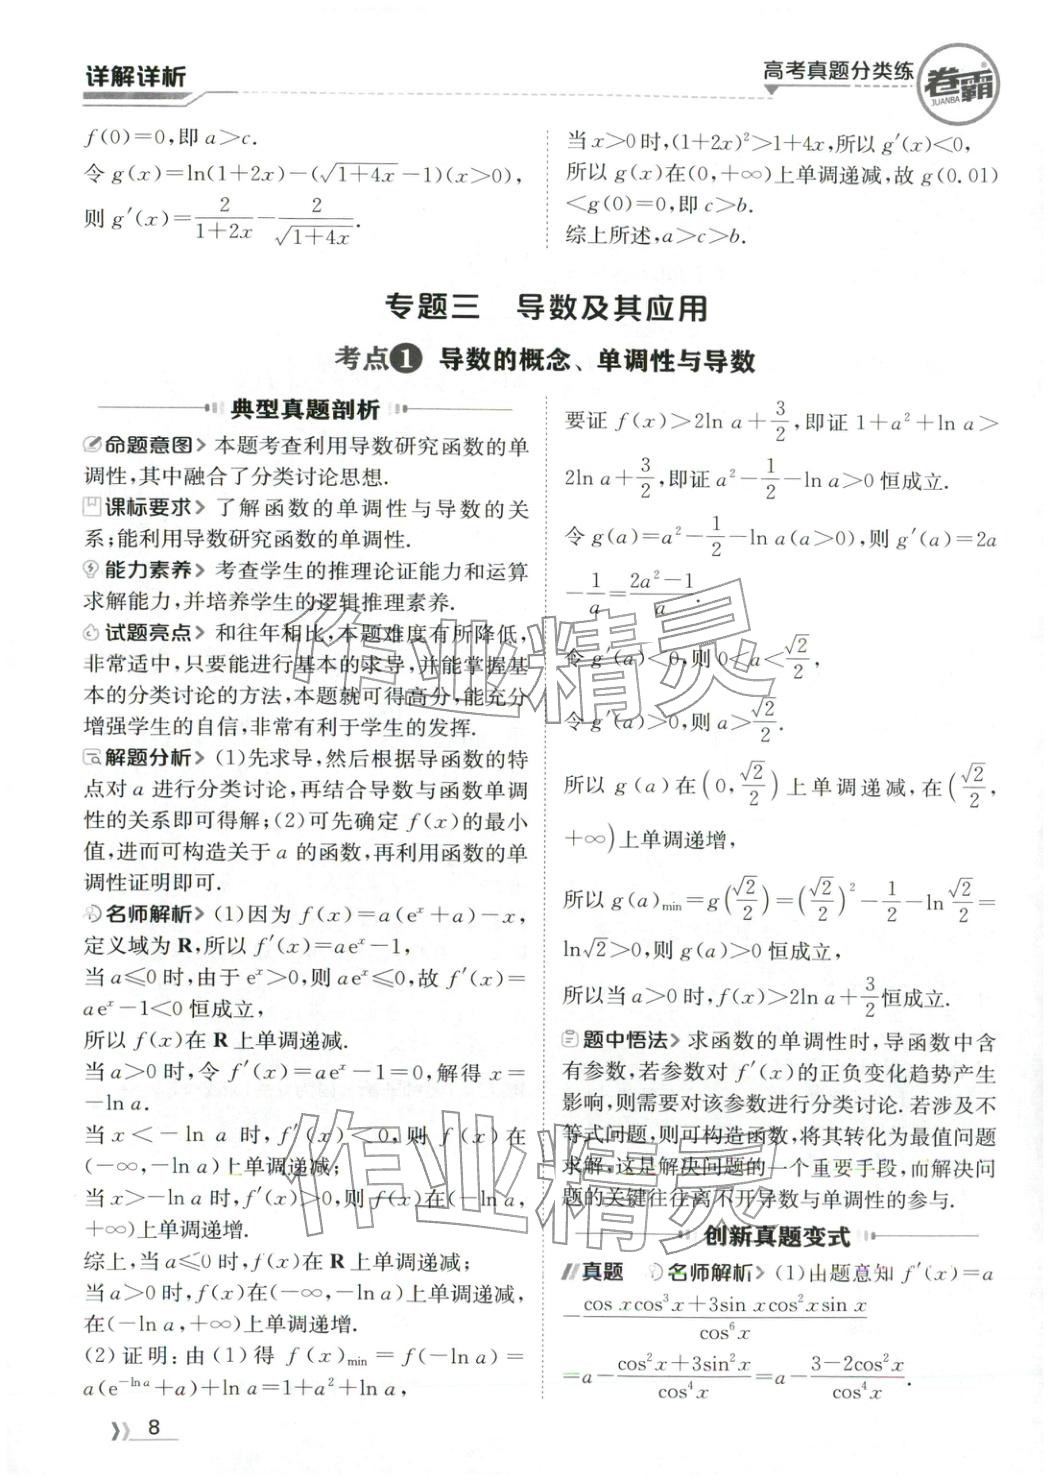 详解详析
高考真题分类练
卷霸
JUANBA
f(0)=0,即 a>c.
令 g(x)=ln(1+2x)-(√(1+4x)-1)(x>0),
则 g′(x)=2/(1+2x)-2/√(1+4x).
当 x>0 时,(1+2x)²>1+4x,所以 g′(x)<0,
所以 g(x)在(0,+∞)上单调递减,故 g(0.01)
<g(0)=0,即 c>b.
综上所述,a>c>b.
专题三 导数及其应用
考点1 导数的概念、单调性与导数
典型真题剖析
命题意图> 本题考查利用导数研究函数的单
调性,其中融合了分类讨论思想.
课标要求> 了解函数的单调性与导数的关
系;能利用导数研究函数的单调性.
能力素养> 考查学生的推理论证能力和运算
求解能力,并培养学生的逻辑推理素养.
试题亮点> 和往年相比,本题难度有所降低,
非常适中,只要能进行基本的求导,并能掌握基
本的分类讨论的方法,本题就可得高分,能充分
增强学生的自信,非常有利于学生的发挥.
解题分析> (1)先求导,然后根据导函数的特
点对 a 进行分类讨论,再结合导数与函数单调
性的关系即可得解;(2)可先确定 f(x)的最小
值,进而可构造关于 a 的函数,再利用函数的单
调性证明即可.
名师解析> (1)因为 f(x)=a(eˣ+a)-x,
定义域为 R,所以 f′(x)=aeˣ-1,
当 a≤0 时,由于 eˣ>0,则 aeˣ≤0,故 f′(x)=
aeˣ-1<0 恒成立,
所以 f(x)在 R 上单调递减.
当 a>0 时,令 f′(x)=aeˣ-1=0,解得 x=
-ln a.
当 x<-ln a 时,f′(x)<0,则 f(x)在
(-∞,-ln a)上单调递减;
当 x>-ln a 时,f′(x)>0,则 f(x)在(-ln a,
+∞)上单调递增.
综上,当 a≤0 时,f(x)在 R 上单调递减;
当 a>0 时,f(x)在(-∞,-ln a)上单调递减,
在(-ln a,+∞)上单调递增.
(2)证明:由(1)得 f(x)min=f(-ln a)=
a(e^(-ln a)+a)+ln a=1+a²+ln a,
要证 f(x)>2ln a+3/2,即证 1+a²+ln a>
2ln a+3/2,即证 a²-1/2-ln a>0 恒成立.
令 g(a)=a²-1/2-ln a(a>0),则 g′(a)=2a
-1/a=(2a²-1)/a.
令 g′(a)<0,则 0<a<√2/2,
令 g′(a)>0,则 a>√2/2.
所以 g(a)在(0,√2/2)上单调递减,在(√2/2,
+∞)上单调递增,
所以 g(a)min=g(√2/2)=(√2/2)²-1/2-ln √2/2=
ln√2>0,则 g(a)>0 恒成立,
所以当 a>0 时,f(x)>2ln a+3/2恒成立.
题中悟法> 求函数的单调性时,导函数中含
有参数,若参数对 f′(x)的正负变化趋势产生
影响,则需要对该参数进行分类讨论.若涉及不
等式问题,则可构造函数,将其转化为最值问题
求解,这是解决问题的一个重要手段,而解决问
题的关键往往离不开导数与单调性的参与.
创新真题变式
真题 名师解析> (1)由题意知 f′(x)=a
-(cos xcos³x+3sin xcos²xsin x)/cos⁶x
=a-(cos²x+3sin²x)/cos⁴x=a-(3-2cos²x)/cos⁴x.
8
作业精灵
作业精灵